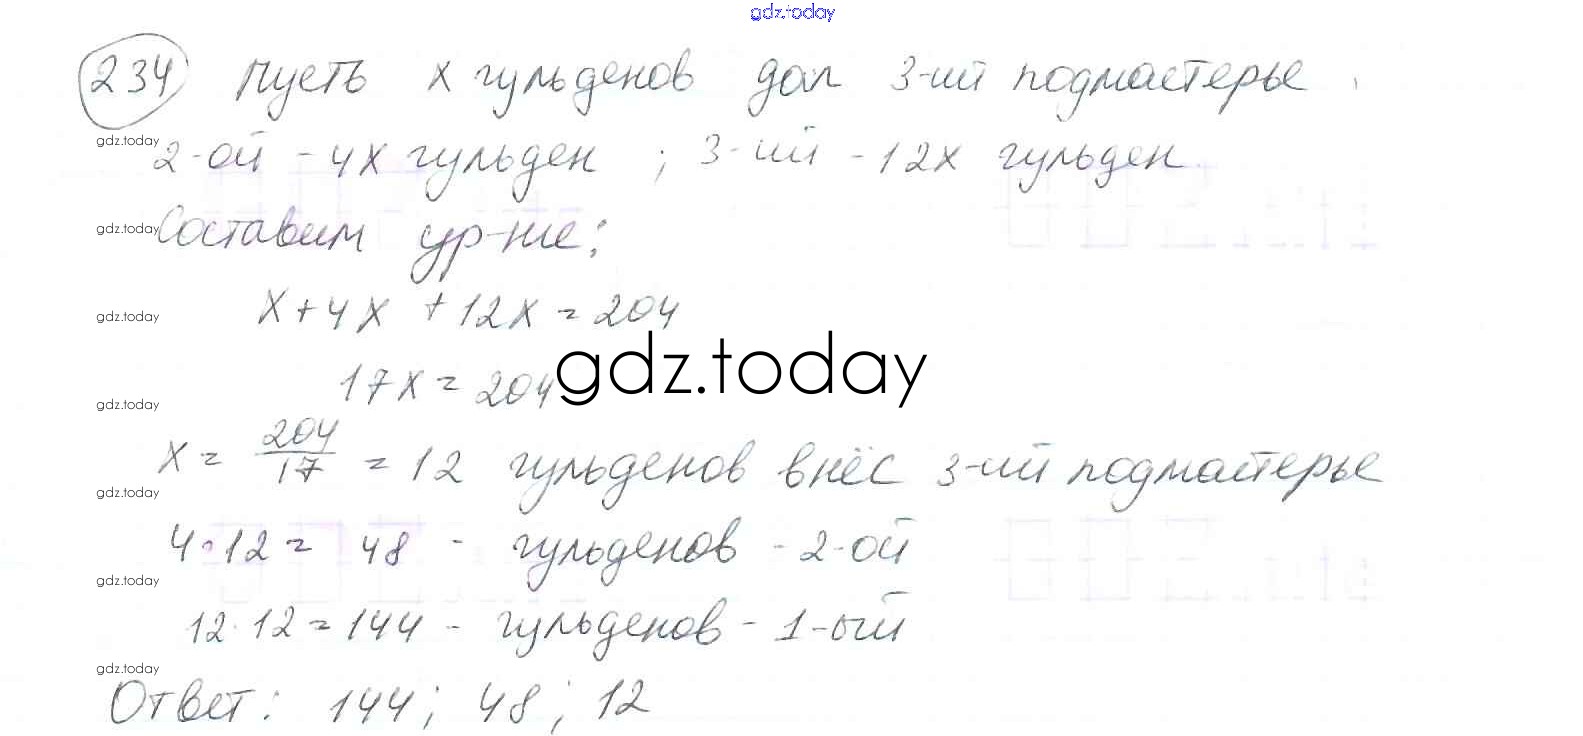 gdz.today
234 Пусть х гульденов дал 3-ий подмастерье
gdz.today
2-ой - 4х гульден ; 3-ий - 12х гульден
gdz.today
Составим ур-ние:
gdz.today
х + 4х + 12х = 204
gdz.today
17х = 204
gdz.today
х = 204/17 = 12 гульденов внёс 3-ий подмастерье
gdz.today
4·12 = 48 - гульденов - 2-ой
gdz.today
12·12 = 144 - гульденов - 1-ый
gdz.today
Ответ: 144; 48; 12